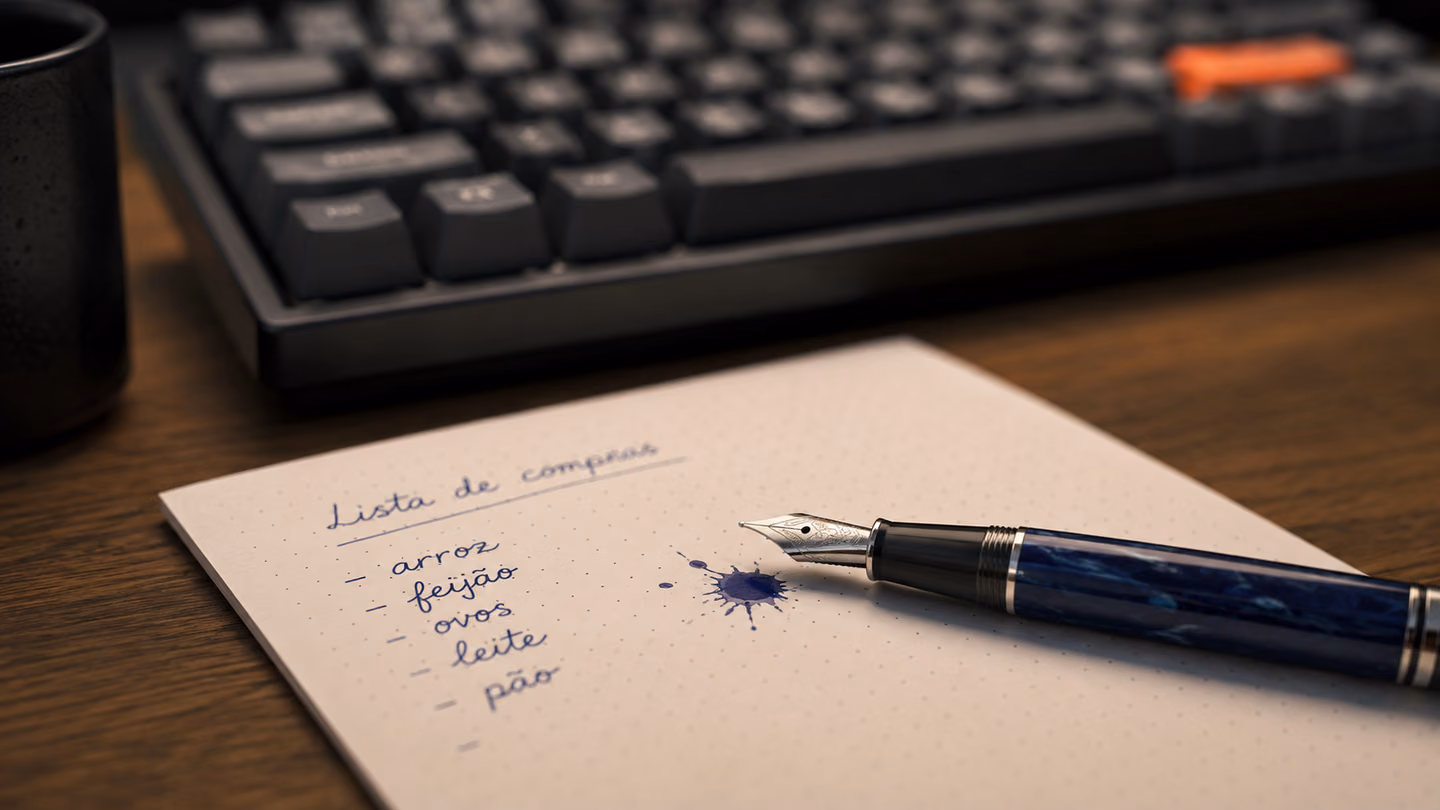 Lista de compras
- arroz
- feijão
- ovos
- leite
- pão
-